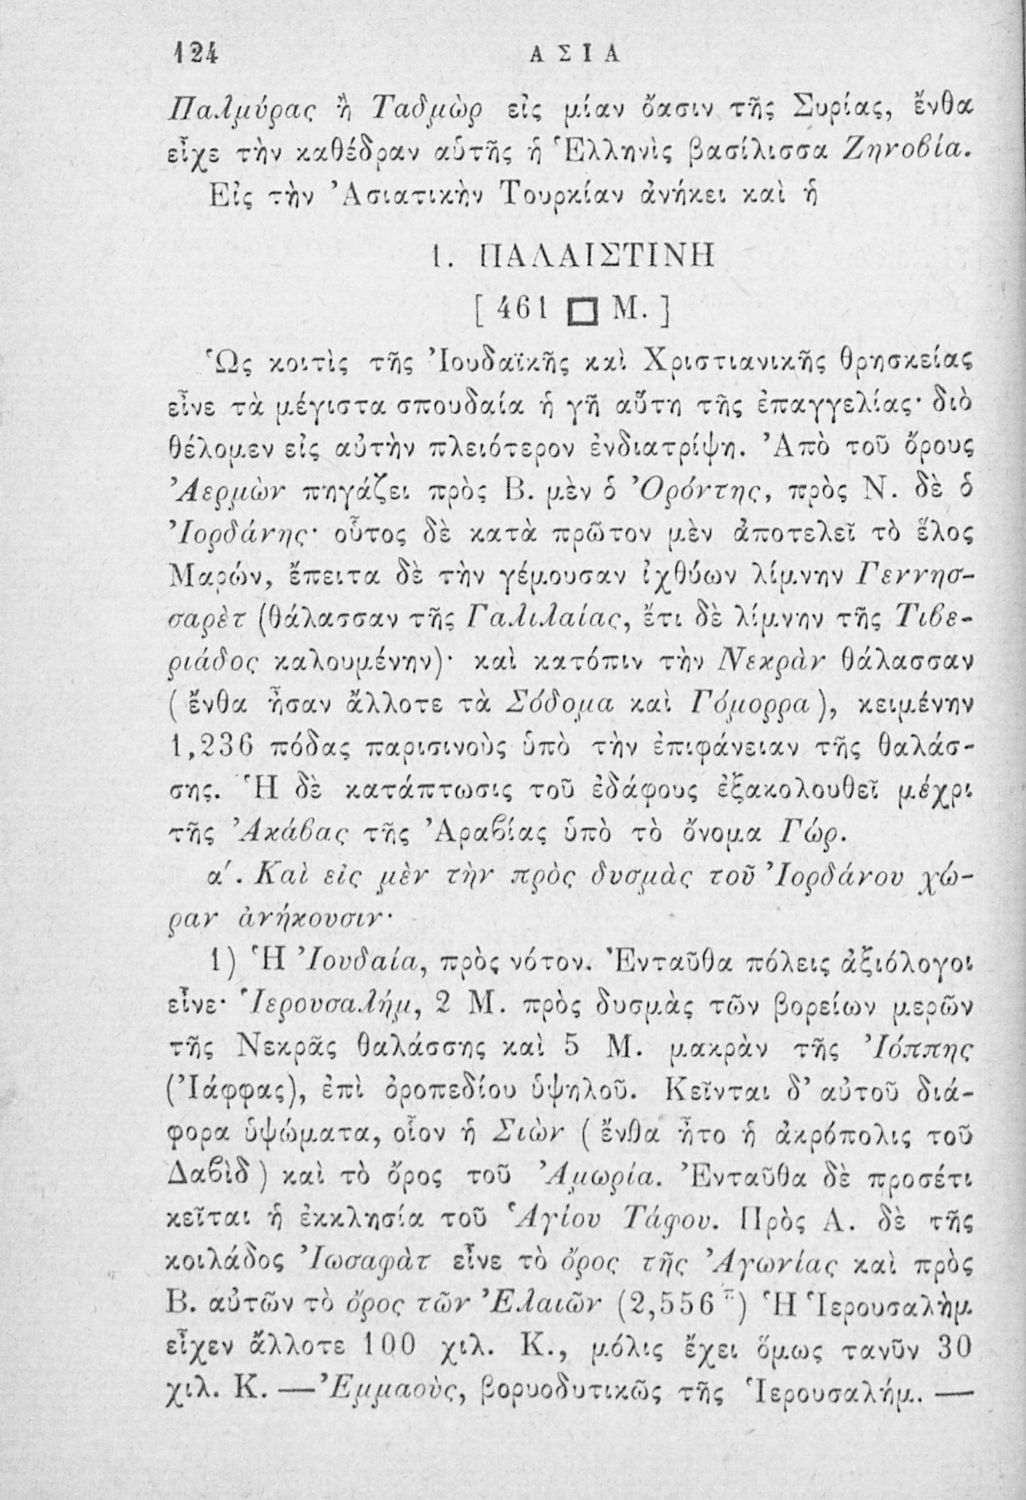 124 ΑΣΙΑ
Παλμύρας ἢ Ταδμὼρ εἰς μίαν ὄασιν τῆς Συρίας, ἔνθα
εἶχε τὴν καθέδραν αὑτῆς ἡ Ἑλληνὶς βασίλισσα Ζηνοβία.
Εἰς τὴν Ἀσιατικὴν Τουρκίαν ἀνήκει καὶ ἡ
1. ΠΑΛΑΙΣΤΙΝΗ
[ 461 □ Μ. ]
Ὡς κοιτὶς τῆς Ἰουδαϊκῆς καὶ Χριστιανικῆς θρησκείας
εἶνε τὰ μέγιστα σπουδαία ἡ γῆ αὕτη τῆς ἐπαγγελίας· διὸ
θέλομεν εἰς αὐτὴν πλειότερον ἐνδιατρίψῃ. Ἀπὸ τοῦ ὄρους
Ἀερμὼν πηγάζει πρὸς Β. μὲν ὁ Ὀρόντης, πρὸς Ν. δὲ ὁ
Ἰορδάνης· οὗτος δὲ κατὰ πρῶτον μὲν ἀποτελεῖ τὸ ἕλος
Μαρών, ἔπειτα δὲ τὴν γέμουσαν ἰχθύων λίμνην Γεννησ-
σαρὲτ (θάλασσαν τῆς Γαλιλαίας, ἔτι δὲ λίμνην τῆς Τιβε-
ριάδος καλουμένην)· καὶ κατόπιν τὴν Νεκρὰν θάλασσαν
( ἔνθα ἦσαν ἄλλοτε τὰ Σόδομα καὶ Γόμορρα ), κειμένην
1,236 πόδας παρισινοὺς ὑπὸ τὴν ἐπιφάνειαν τῆς θαλάσ-
σης. Ἡ δὲ κατάπτωσις τοῦ ἐδάφους ἐξακολουθεῖ μέχρι
τῆς Ἀκάβας τῆς Ἀραβίας ὑπὸ τὸ ὄνομα Γώρ.
α΄. Καὶ εἰς μὲν τὴν πρὸς δυσμὰς τοῦ Ἰορδάνου χώ-
ραν ἀνήκουσιν·
1) Ἡ Ἰουδαία, πρὸς νότον. Ἐνταῦθα πόλεις ἀξιόλογοι
εἶνε· Ἱερουσαλήμ, 2 Μ. πρὸς δυσμὰς τῶν βορείων μερῶν
τῆς Νεκρᾶς θαλάσσης καὶ 5 Μ. μακρὰν τῆς Ἰόππης
(Ἰάφφας), ἐπὶ ὀροπεδίου ὑψηλοῦ. Κεῖνται δ' αὐτοῦ διά-
φορα ὑψώματα, οἷον ἡ Σιὼν ( ἔνθα ἦτο ἡ ἀκρόπολις τοῦ
Δαβὶδ ) καὶ τὸ ὄρος τοῦ Ἀμωρία. Ἐνταῦθα δὲ προσέτι
κεῖται ἡ ἐκκλησία τοῦ Ἁγίου Τάφου. Πρὸς Α. δὲ τῆς
κοιλάδος Ἰωσαφὰτ εἶνε τὸ ὄρος τῆς Ἀγωνίας καὶ πρὸς
Β. αὐτῶν τὸ ὄρος τῶν Ἐλαιῶν (2,556 π) Ἡ Ἱερουσαλὴμ
εἶχεν ἄλλοτε 100 χιλ. Κ., μόλις ἔχει ὅμως τανῦν 30
χιλ. Κ. — Ἐμμαοὺς, βορυοδυτικῶς τῆς Ἱερουσαλήμ. —